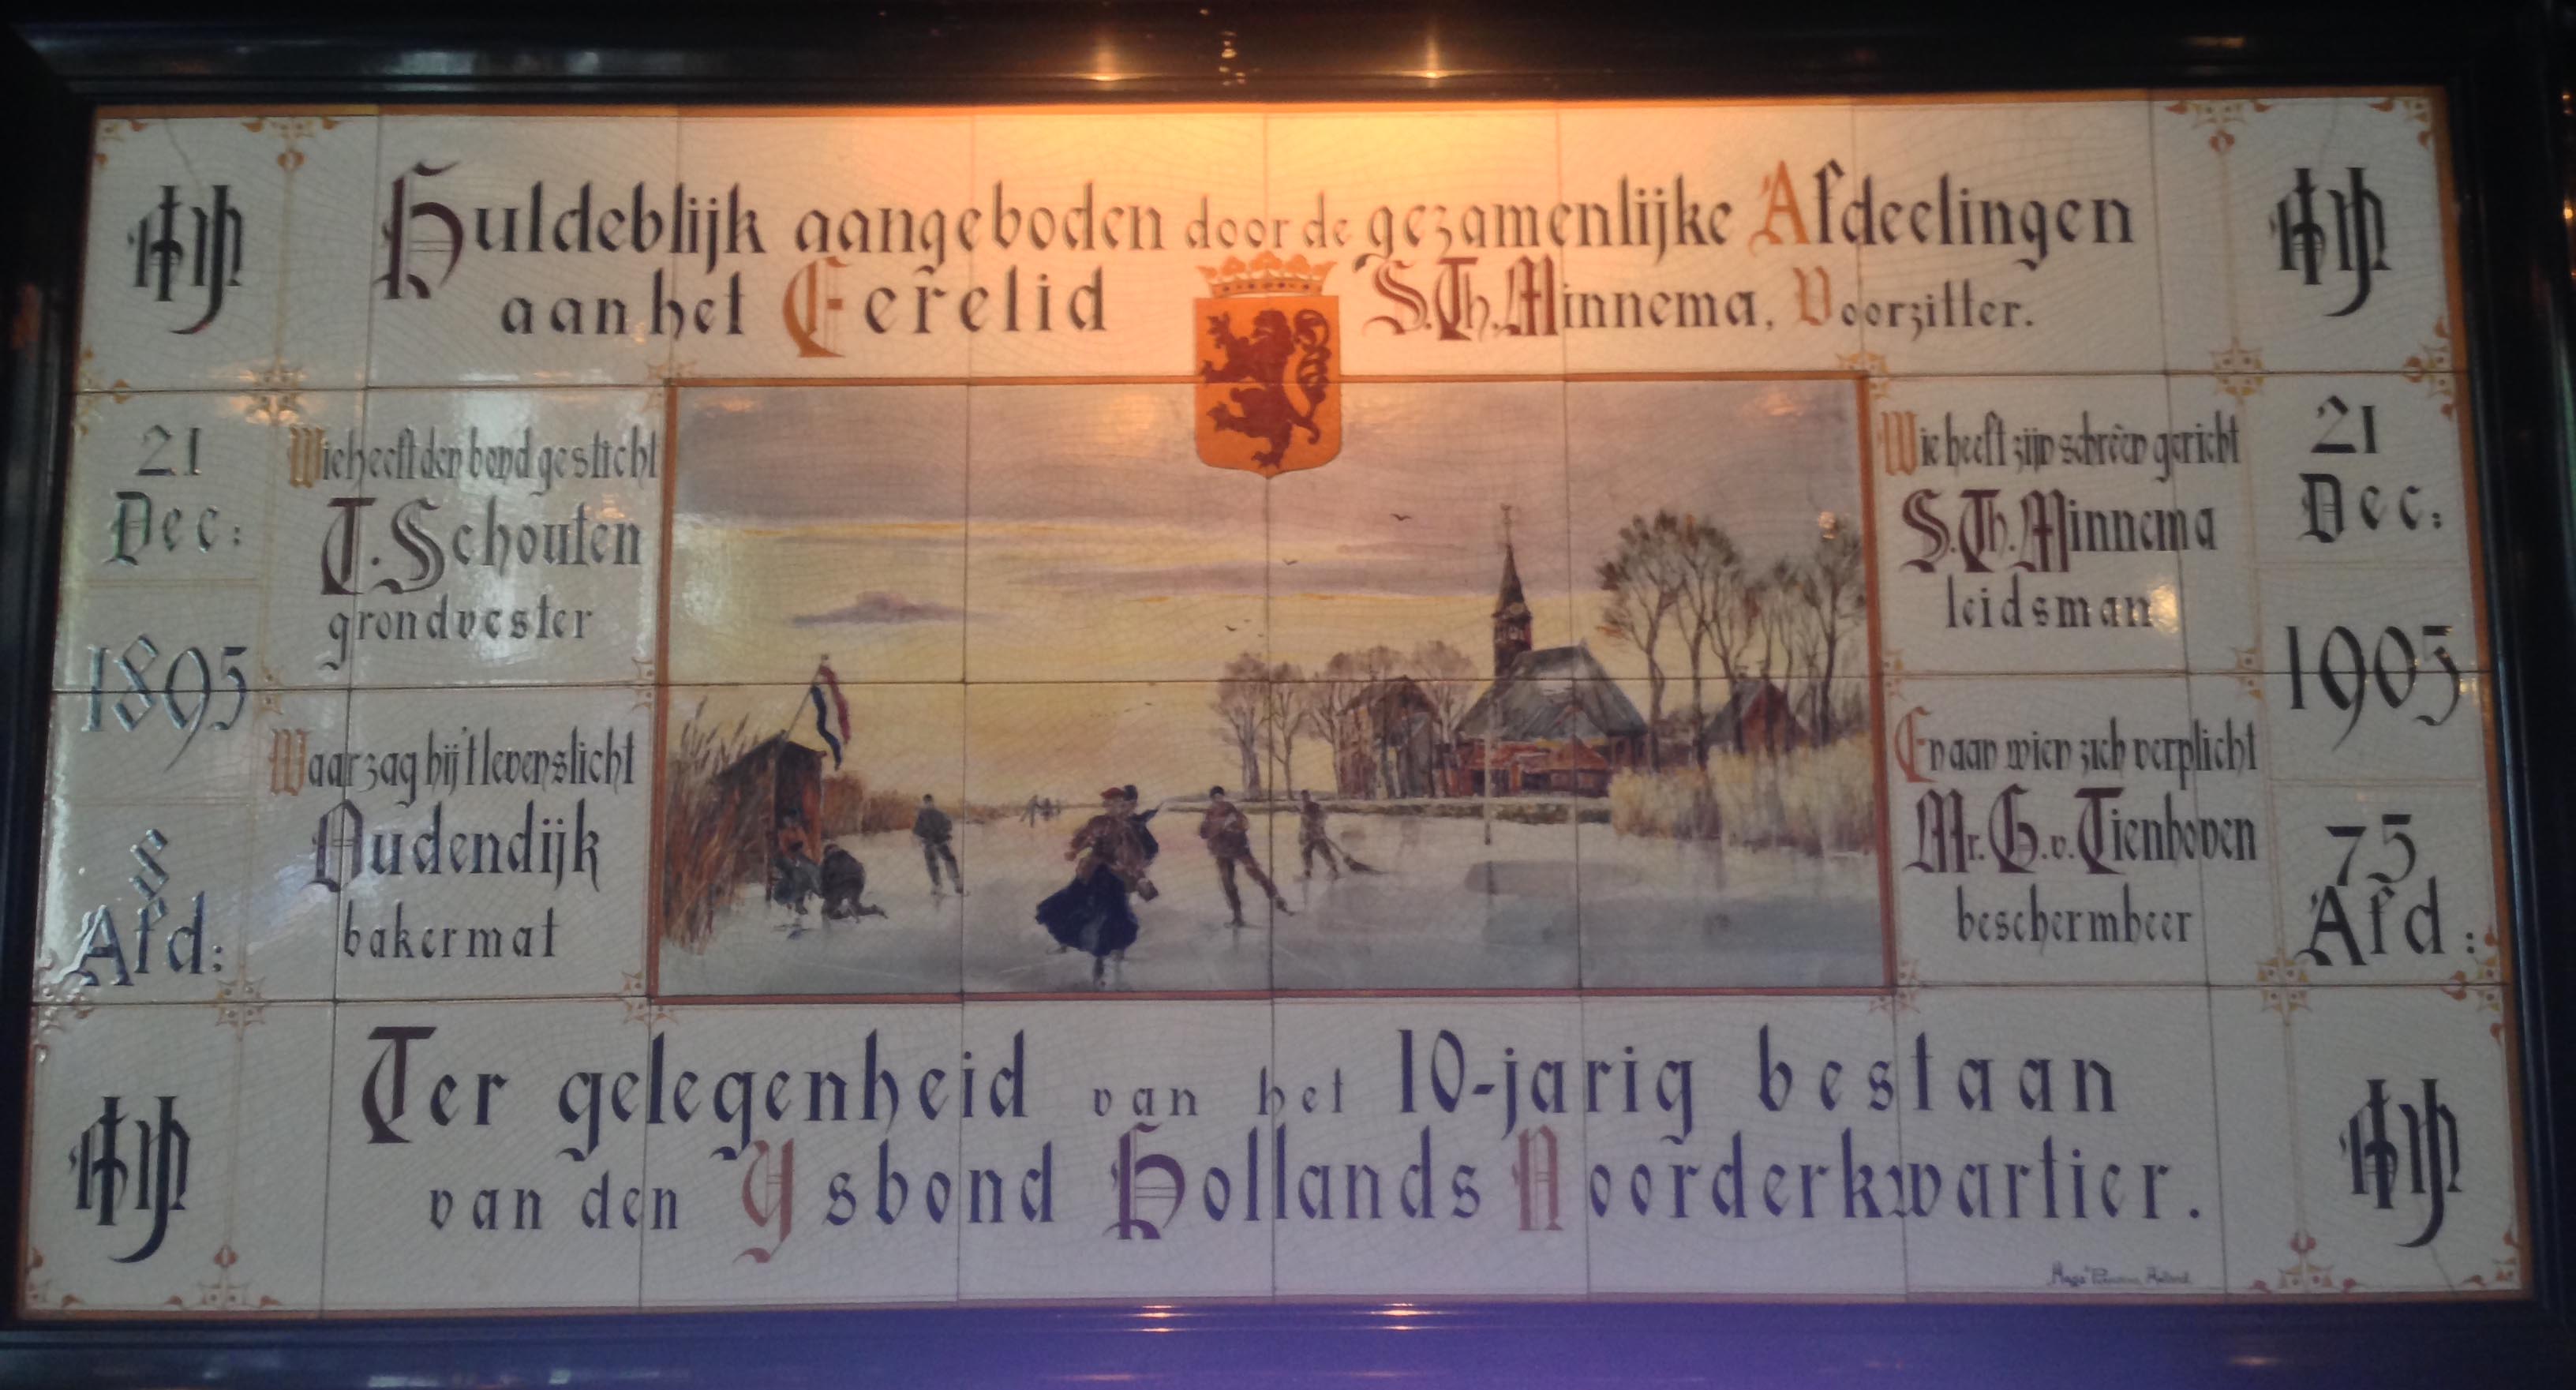 Huldeblijk aangeboden door de gezamenlijke Afdeelingen
aan het Eerelid S.Th. Minnema, Voorzitter.
21
Dec:
1895
8
Afd:
Wie heeft den bond gesticht
T. Schouten
grondvester
Waar zag hij 't levenslicht
Oudendijk
bakermat
Wie heeft zijn schreên gericht
S.Th. Minnema
leidsman
En aan wien zich verplicht
Mr. G. v. Tienhoven
beschermheer
21
Dec:
1905
75
Afd:
Ter gelegenheid van het 10-jarig bestaan
van den Ysbond Hollands Noorderkwartier.
Holland